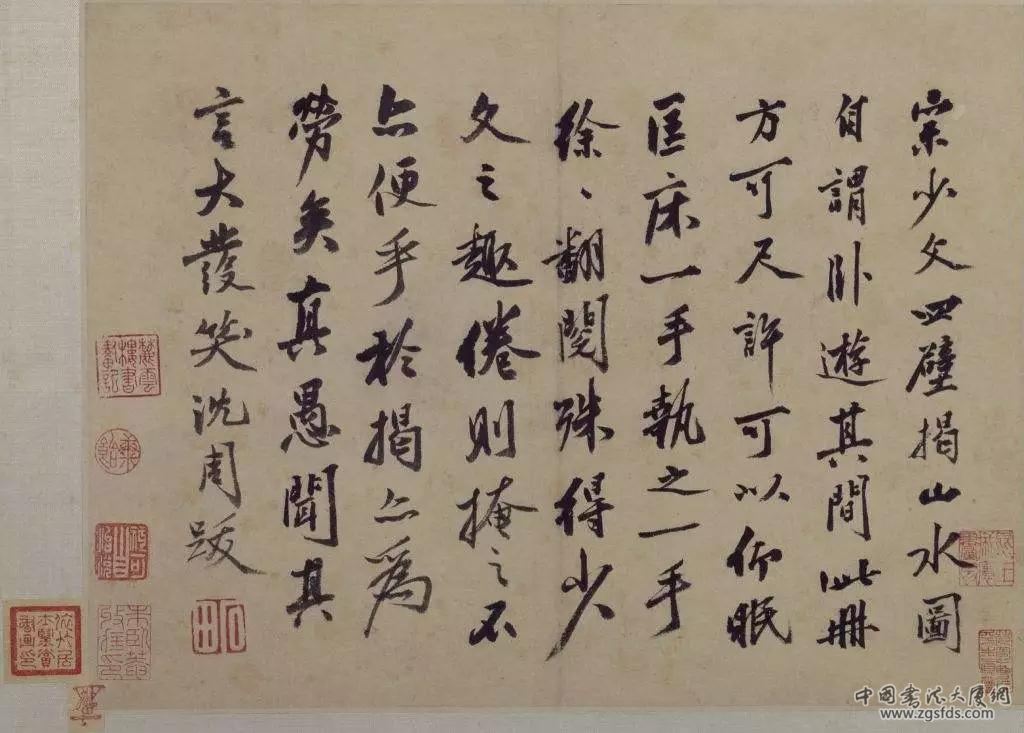 宗少文四壁揭山水圖
自謂卧遊其間此冊
方可尺許可以仰眠
匡床一手執之一手
徐〻翻閱殊得少
文之趣倦則掩之不
亦便乎於揭亦為
勞矣真愚聞其
言大發笑沈周跋
石田
中国书法大厦網
www.zgsfds.com